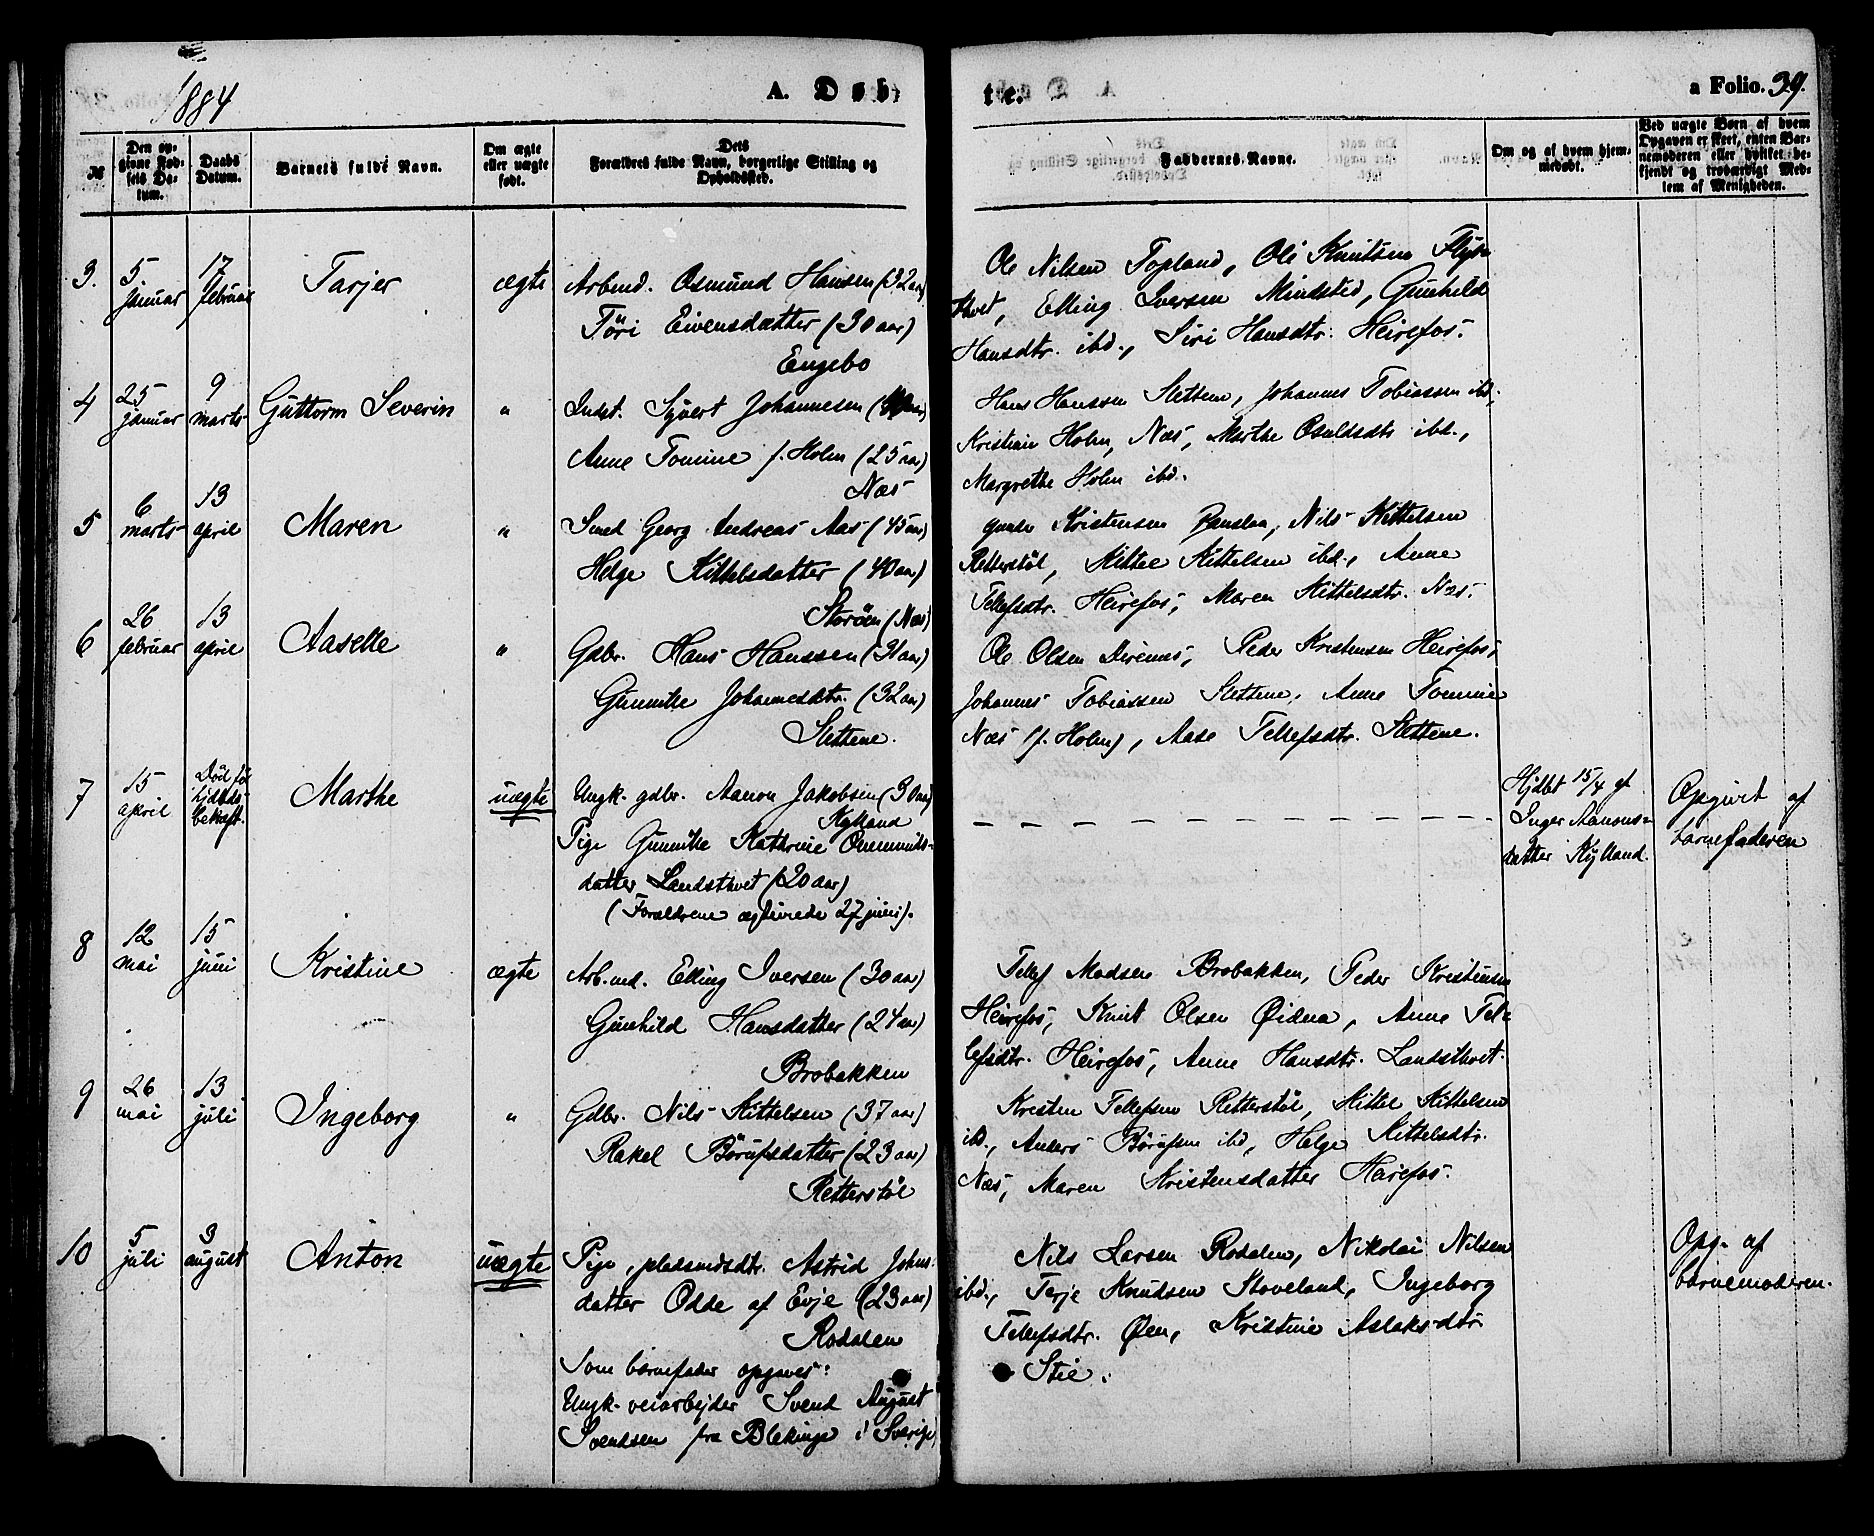 1884
A. Døb-
te.
a Folio. 39.
№
Den opgivne Fødsels Datum.
Daabs Datum.
Barnets fulde Navn.
Om ægte eller uægte født.
Dets Forældres fulde Navn, borgerlige Stilling og Opholdssted.
Faddernes Navne.
Om og af hvem hjemmedøbt.
Ved uægte Børn af hvem Opgaven er skeet, enten Barnemoderen eller hvilket bekjendt og troværdigt Medlem af Menigheden.
3. 5 januar 17 februar Tarjer ægte Arbmd. Osmund Hansen (32 aar)
Töri Eivensdatter (30 aar)
Engebo
Ole Nilsen Topland, Ole Knutsen
Elling Iversen Mindsted, Gunhild
Hansdtr. ibd., Siri Hansdtr. Heirefos.
4 25 januar 9 marts Guttorm Severin " Indst. Sjvert Johannesen
Anne Tomine f. Holm (25 aar)
Næs
Hans Hanssen Slettene, Johannes Tobiassen ibd.,
Kristian Holm, Næs, Marthe Osuldsdtr ibd.,
Margrethe Holm ibd.
5 6 marts 13 april Maren " Smed Georg Andreas Aas (45 aar)
Helge Kittelsdatter (40 aar)
Storöen (Næs)
Kristensen Nils Kittelsen
Retterstöl, Kittel Kittelsen ibd., Anne
Tellefsdtr. Heirefos, Maren Kittelsdtr. Næs.
6 26 februar 13 april Aaselle " Gdbr. Hans Hanssen (31 aar)
Gunvilke Johannesdtr. (32 aar)
Slettene.
Ole Olsen Peder Kristensen Heirefos,
Johannes Tobiassen Slettene, Anne Tomine
Næs (f. Holm), Aase Tellefsdtr. Slettene.
7 15 april Död för Marthe uægte Ungk. gdbr. Aanon Jakobsen (30 aar)
Kylland
Pige Gunvilke Kathrine
datter Landsthvet (20 aar)
(Forældrene ægteviede 27 juni).
Hjdbt 15/4 af
Inger Aanons-
datter Kylland.
Opgivet af
barnefaderen
8 12 mai 15 juni Kristine ægte Arb.md. Elling Iversen (30 aar)
Gunhild Hansdatter (24 aar)
Brobakken
Tellef Madsen Brobakken, Peder Kristensen
Heirefos, Knut Olsen Øidna, Anne Tel-
lefsdtr. Heirefos, Anne Hansdtr. Landsthvet.
9 26 mai 13 juli Ingeborg " Gdbr. Nils Kittelsen (37 aar)
Rakel Börufsdatter (23 aar)
Retterstöl
Kristen Tellefsen Retterstöl, Kittel Kittelsen
ibd., Anders Börufsen ibd, Helge Kittelsdtr.
Næs, Maren Kristensdatter Heirefos.
10 5 juli 3 august Anton uægte Pige, pladsmdsdtr. Astrid Johns-
datter Odde af Evje (23 aar)
Rosdalen
Som barnefader opgaves:
Ungk. veiarbejder Svend August
Svendsen fra Blekinge i Sverige
Nils Larsen Rosdalen, Nikolai Nilsen
ibd., Terje Knudsen Skoveland, Ingeborg
Tellefsdtr. Øen, Kristine Aslaksdtr
Stie.
Opg. af
barnemoderen.